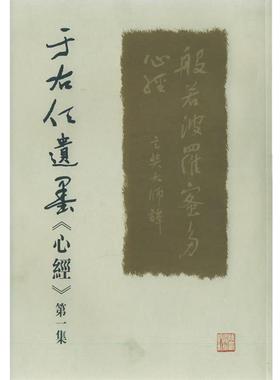 于右任遺墨《心經》第一集
般若波羅蜜多
心經
玄奘大師譯